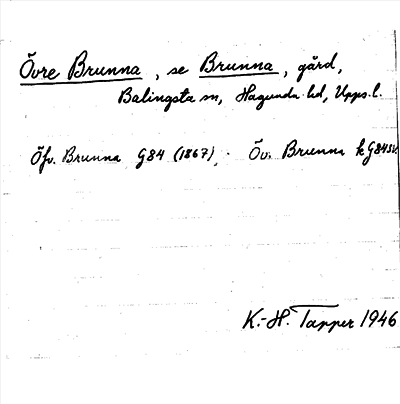 Övre Brunna, se Brunna, gård,
Balingsta sn, Hagunda hd, Upps. l.
Öfv. Brunna G84 (1867). Öv. Brunna k G84SV
K.-H. Tapper 1946